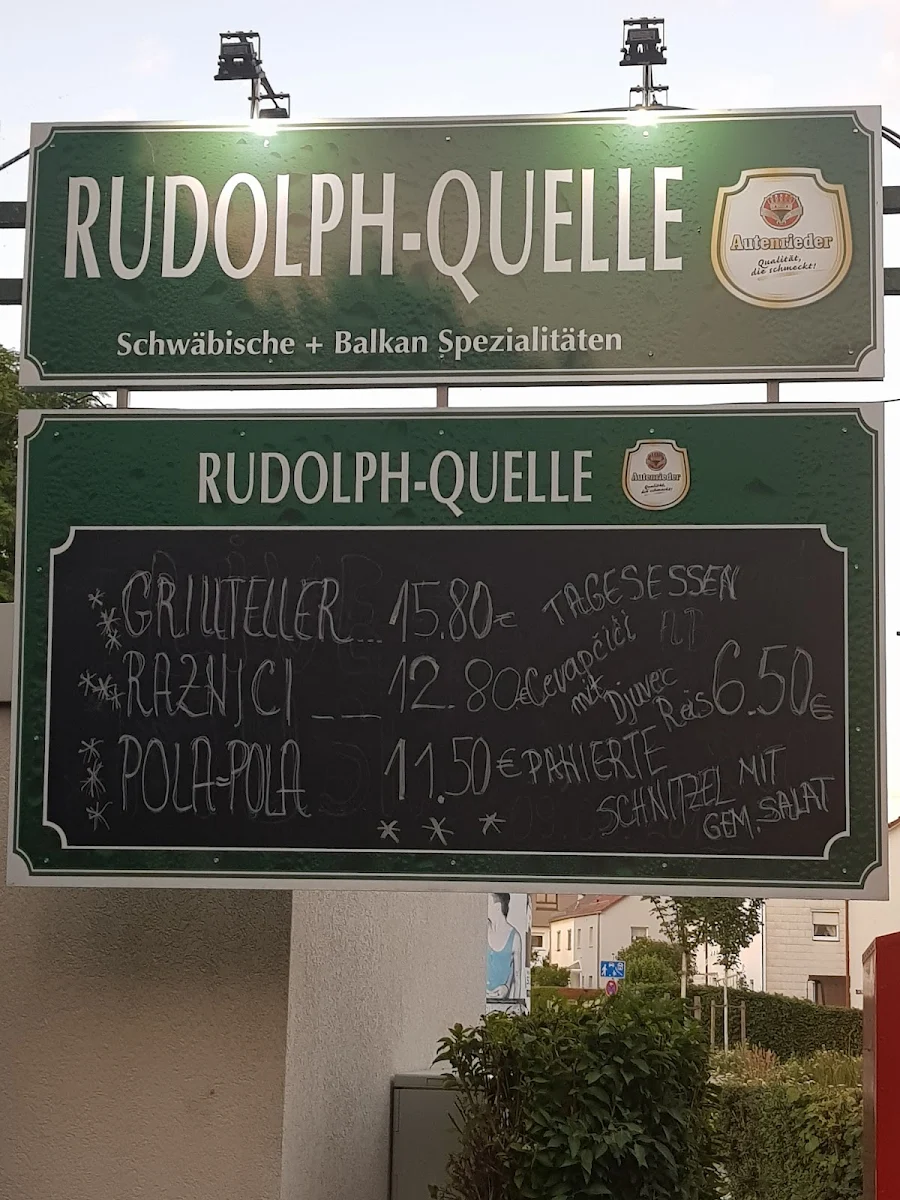 RUDOLPH-QUELLE
Autenrieder
Qualität,
die schmeckt!
Schwäbische + Balkan Spezialitäten
RUDOLPH-QUELLE
Autenrieder
Qualität,
die schmeckt!
GRILLTELLER 15.80€
RAZNJCI 12.80€
POLA=POLA 11.50€
TAGESESSEN
Cevapčiči
mit
Djuvec
Reis 6.50€
PANIERTE
SCHNITZEL MIT
GEM. SALAT